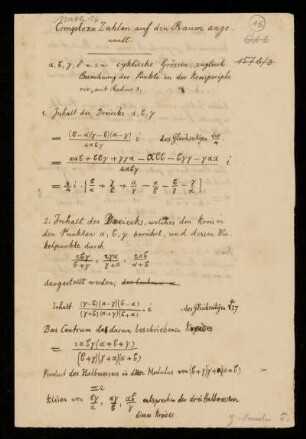 math 16
16
Complexe Zahlen auf den Raum ange
wandt.
157 6/2
α, β, γ, δ cyklische Grössen, zugleich
Bezeichnung der Punkte in der Kreisperiphe
rie, mit Radius 1.
1. Inhalt des Dreiecks α, β, γ
= (β−α)(γ−β)(α−γ) / 4αβγ i des Gleichseitigen
= ααβ + ββγ + γγα − αββ − βγγ − γαα i
= ¼ i · [β/α + γ/β + α/γ − α/β − β/γ − γ/α]
2. Inhalt des Dreiecks, welches den Kreis in
den Punkten α, β, γ berührt, und dessen Win
kelpunkte durch
2βγ/β+γ, 2γα/γ+α, 2αβ/α+β
dargestellt werden;
Inhalt (γ−β)(α−γ)(β−α) / (γ+β)(α+γ)(β+α) · i des Gleichseitigen √27
Das Centrum des darum beschriebenen Kreises
= 2αβγ(α+β+γ) / (β+γ)(γ+α)(α+β)
Product des Halbmessers in den Modulus von (β+γ)(γ+α)(α+β)
= 2
βγ/α, αγ/β, αβ/γ entsprechen der drei Halbmessern
eines Kreises